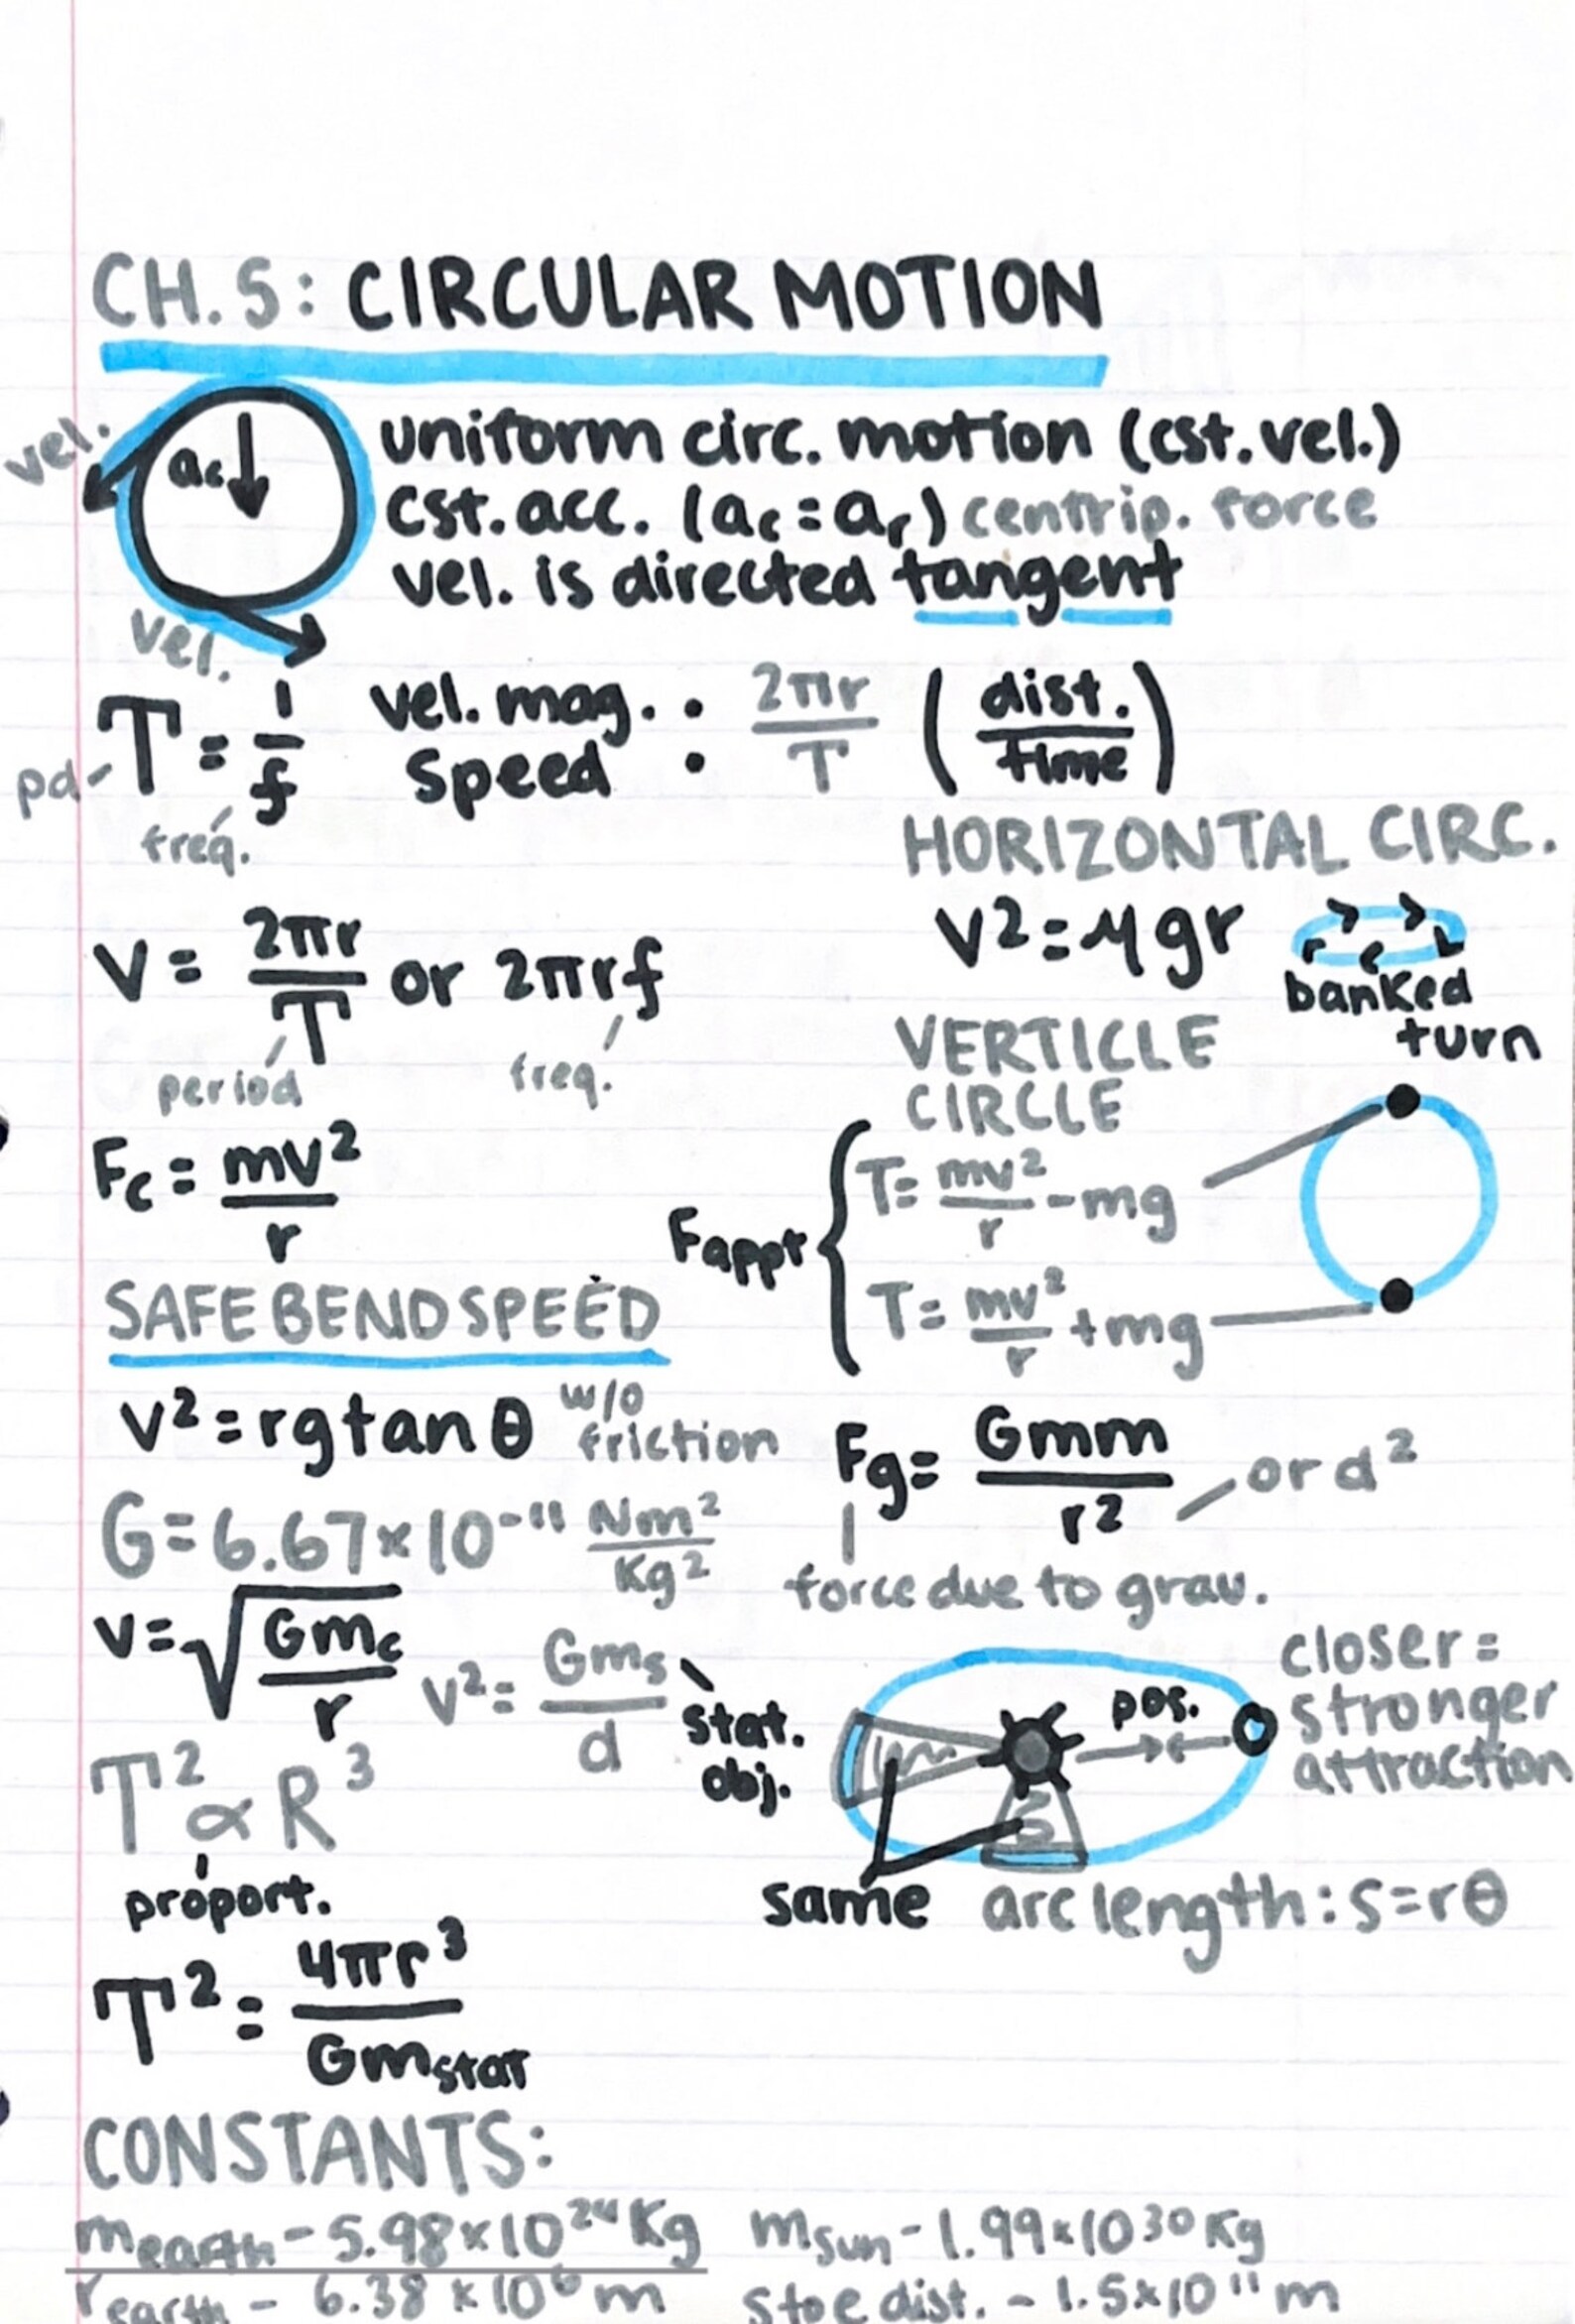 CH. 5: CIRCULAR MOTION
vel.
ac
uniform circ. motion (cst. vel.)
cst. acc. (ac = ar) centrip. force
vel. is directed tangent
vel.
T = 1/f
pd
freq.
vel. mag. :
speed
2πr/T (dist./time)
HORIZONTAL CIRC.
V² = μgr
banked
turn
V = 2πr/T or 2πrf
period
freq.
VERTICLE
CIRCLE
Fc = mv²/r
Fappt { T = mv²/r - mg
T = mv²/r + mg
SAFE BEND SPEED
V² = rg tan θ w/o friction
Fg = Gmm/r² or d²
force due to grav.
G = 6.67 × 10⁻¹¹ Nm²/Kg²
V = √(Gmc/r)
V² = Gms/d
stat.
obj.
pos.
closer =
stronger
attraction
T² ∝ R³
proport.
same
arc length : s = rθ
T² = 4πr³/Gmstar
CONSTANTS:
mearth - 5.98 × 10²⁴ Kg
msun - 1.99 × 10³⁰ Kg
rearth - 6.38 × 10⁶ m
s to e dist. - 1.5 × 10¹¹ m